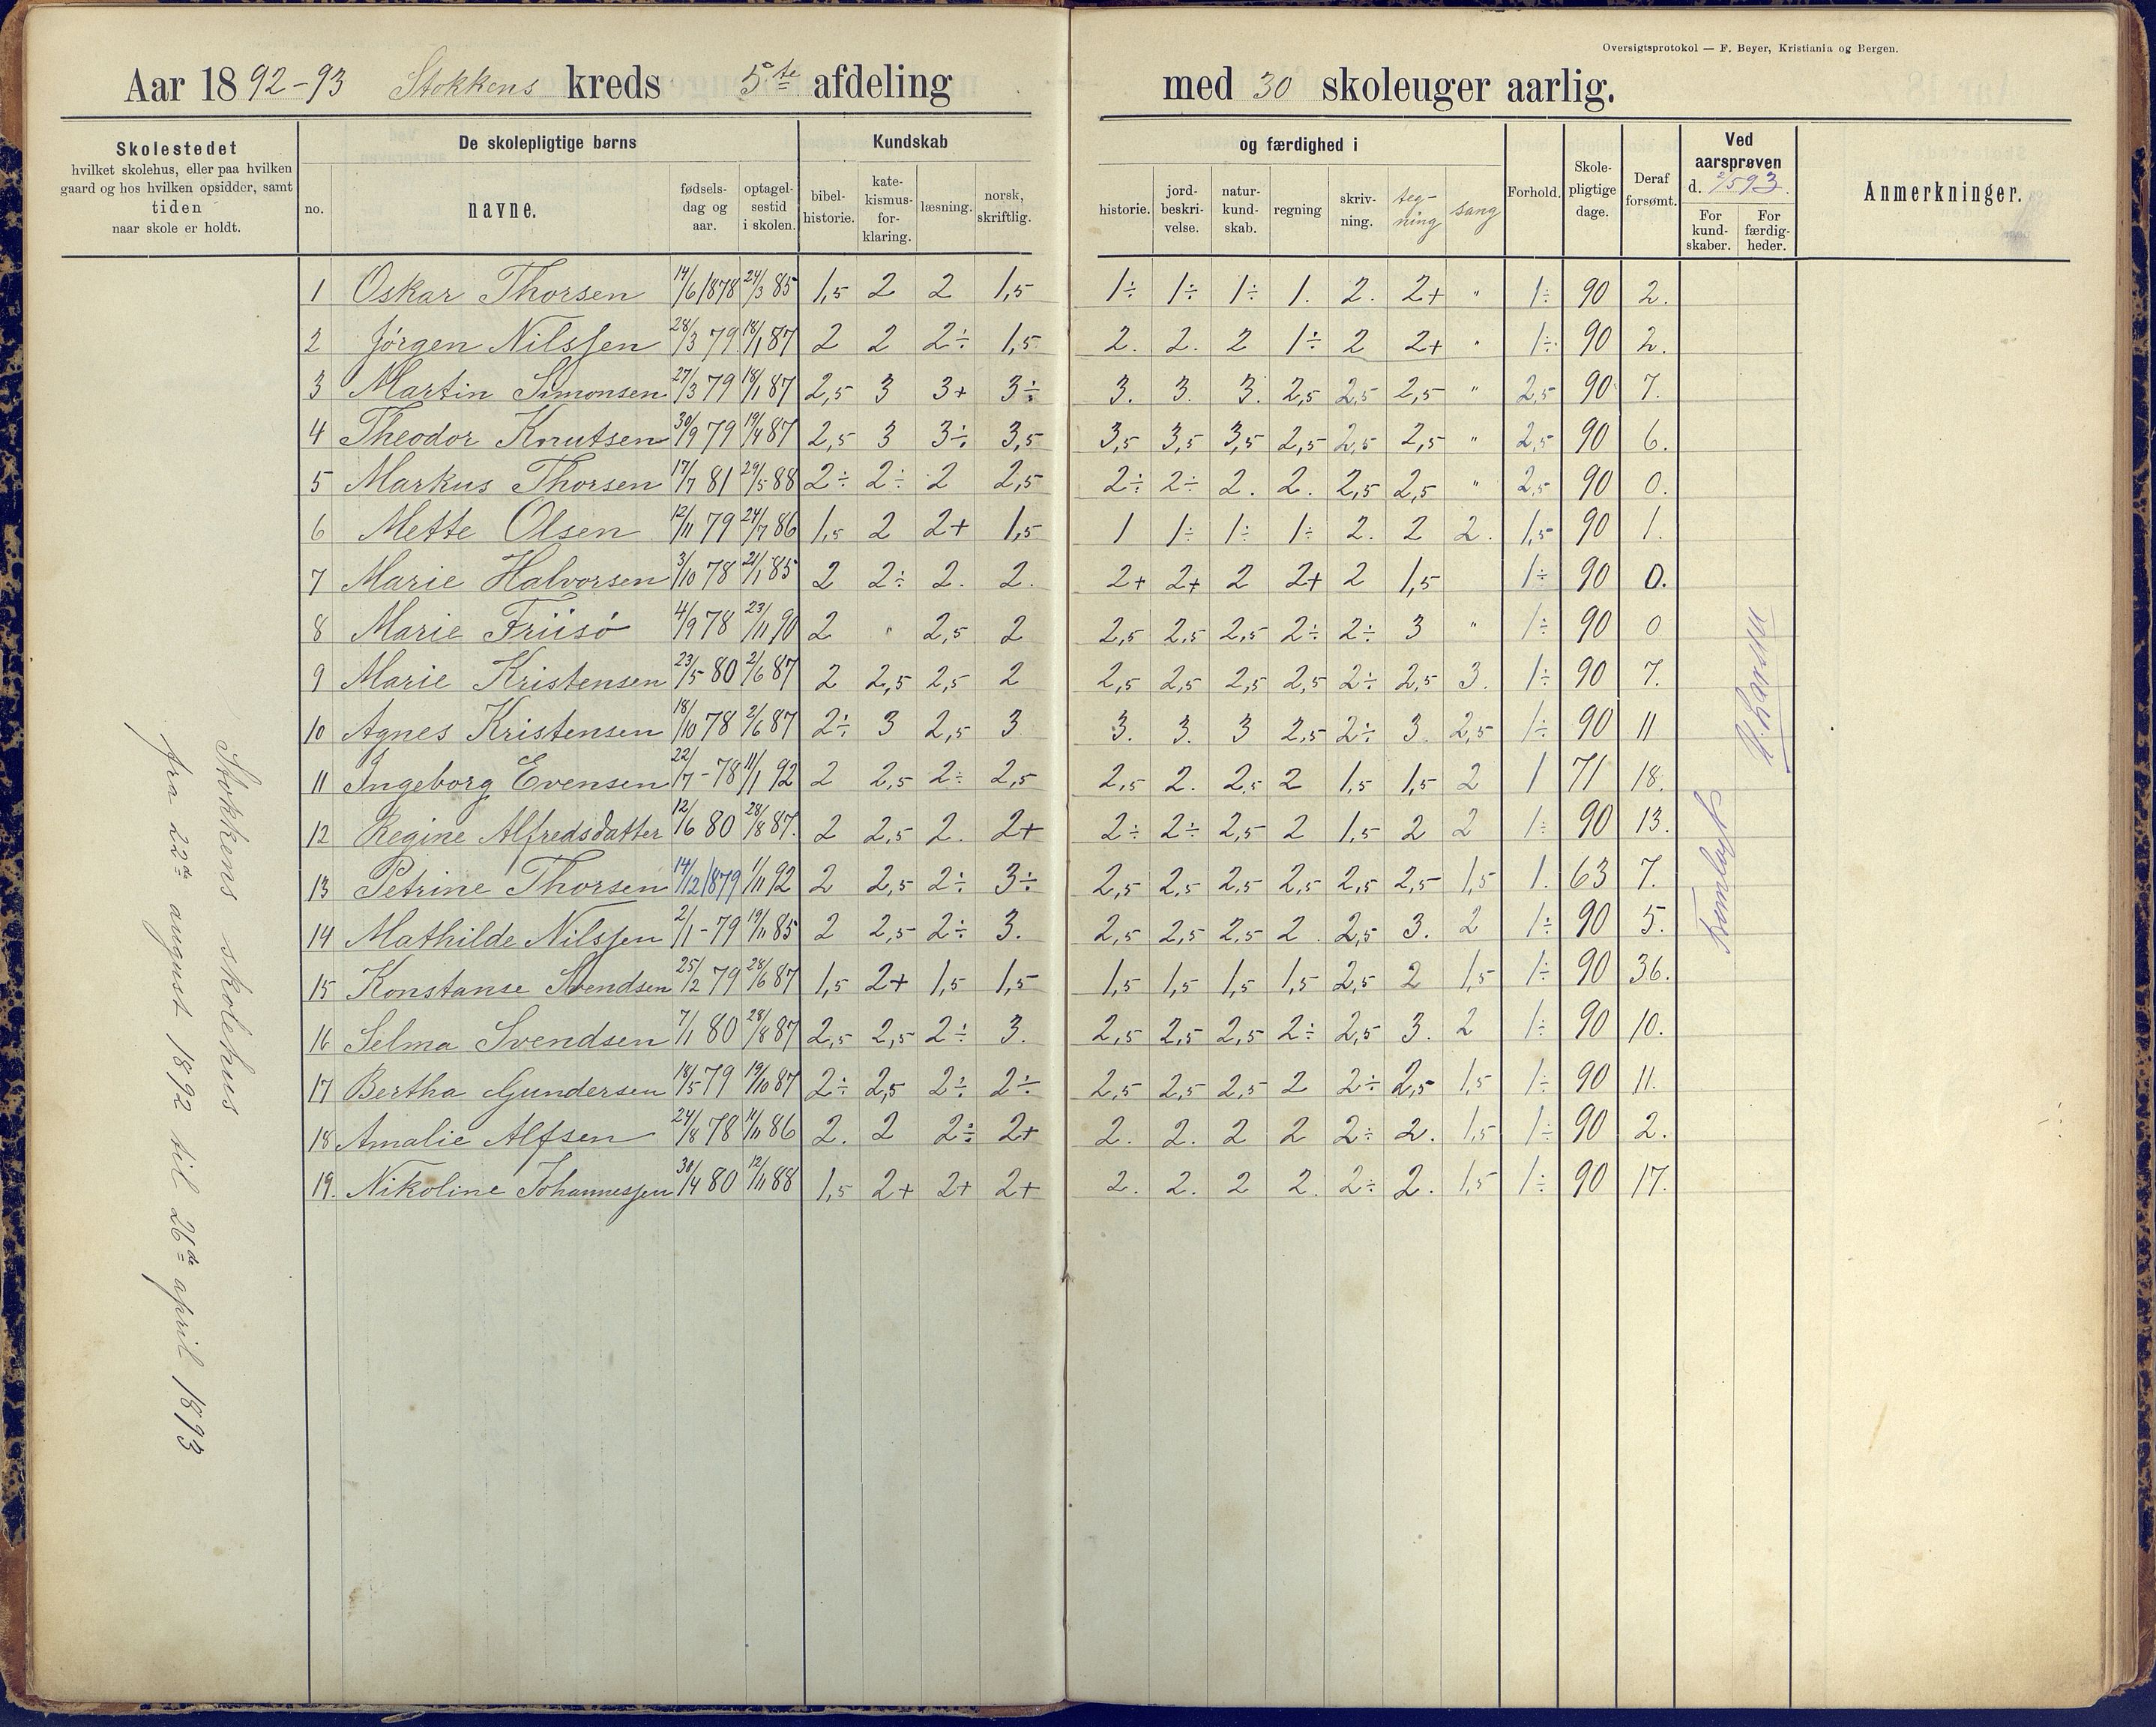 Oversigtsprotokol — F. Beyer, Kristiania og Bergen.
Aar 1892-93 Stokkens kreds 5te afdeling med 30 skoleuger aarlig.
Skolestedet
hvilket skolehus, eller paa hvilken
gaard og hos hvilken opsidder, samt
tiden
naar skole er holdt.
De skolepligtige børns
no.
navne.
fødsels-
dag og
aar.
optagel-
sestid
i skolen.
Kundskab
bibel-
historie.
kate-
kismus-
for-
klaring.
læsning.
norsk,
skriftlig.
og færdighed i
historie.
jord-
beskri-
velse.
natur-
kund-
skab.
regning
skriv-
ning.
teg-
ning
sang
Forhold.
Skole-
pligtige
dage.
Deraf
forsømt.
Ved
aarsprøven
d. 2/5 93.
For
kund-
skaber.
For
færdig-
heder.
Anmerkninger.
1 Oskar Thorsen 14/6 1878 24/3 85 1,5 2 2 1,5 1÷ 1÷ 1÷ 1. 2. 2+ " 1÷ 90 2.
2 Jörgen Nilssen 28/3 79 18/1 87 2 2 2÷ 1,5 2. 2. 2 1÷ 2 2+ " 1÷ 90 2.
3 Martin Simonsen 27/3 79 18/1 87 2,5 3 3+ 3÷ 3. 3. 3. 2,5 2,5 2,5 " 2,5 90 7.
4 Theodor Knutsen 30/9 79 19/4 87 2,5 3 3÷ 3,5 3,5 3,5 3,5 2,5 2,5 2,5 " 2,5 90 6.
5 Markus Thorsen 17/7 81 29/5 88 2÷ 2÷ 2 2,5 2÷ 2÷ 2. 2. 2,5 2,5 " 2,5 90 0.
6 Mette Olsen 12/11 79 24/7 86 1,5 2 2+ 1,5 1 1÷ 1÷ 1÷ 2. 2 2. 1,5 90 1.
7 Marie Halvorsen 3/10 78 21/1 85 2 2÷ 2. 2. 2+ 2+ 2 2+ 2 1,5 1÷ 90 0.
8 Marie Friisö 4/9 78 23/11 90 2 " 2,5 2 2,5 2,5 2,5 2÷ 2÷ 3 " 1÷ 90 0
9 Marie Kristensen 23/5 80 2/6 87 2 2,5 2,5 2 2,5 2,5 2,5 2,5 2÷ 2,5 3. 1÷ 90 7.
10 Agnes Kristensen 18/10 78 2/6 87 2÷ 3 2,5 3 3. 3. 3 2,5 2÷ 3. 2,5 1÷ 90 11
11 Ingeborg Evensen 22/7 - 78 11/1 92 2 2,5 2÷ 2,5 2,5 2. 2,5 2 1,5 1,5 2 1 71 18.
12 Regine Alfredsdatter 12/6 80 28/8 87. 2 2,5 2. 2+ 2÷ 2÷ 2,5 2 1,5 2 2 1÷ 90 13.
13 Petrine Thorsen 14/12 1879 1/11 92 2 2,5 2÷ 3÷ 2,5 2,5 2,5 2,5 2,5 2,5 1,5 1. 63 7.
14 Mathilde Nilssen 2/1 - 79 19/11 85 2 2,5 2÷ 3. 2,5 2,5 2,5 2. 2,5 3. 2 1÷ 90 5.
15 Konstanse Svendsen 25/2 79 28/6 87 1,5 2+ 1,5 1,5 1,5 1,5 1,5 1,5 2,5 2 1,5 1÷ 90 36.
16 Selma Svendsen 7/1 80 28/8 87 2,5 2,5 2÷ 3. 2,5 2,5 2,5 2÷ 2,5 3. 2 1÷ 90 10.
17 Bertha Gundersen 18/5 79 19/10 87 2÷ 2,5 2÷ 2÷ 2,5 2,5 2,5 2 2÷ 2,5 1,5 1÷ 90 11.
18 Amalie Alfsen 24/8 78 11/11 86 2. 2 2÷ 2+ 2. 2. 2 2 2÷ 2. 1,5 1÷ 90 2.
19. Nikoline Johannessen 30/4 80 12/11 88 1,5 2+ 2+ 2+ 2. 2. 2 2. 2÷ 2. 1,5 1÷ 90 17.
Stokkens skolehus
fra 22de august 1892 til 26de april 1893